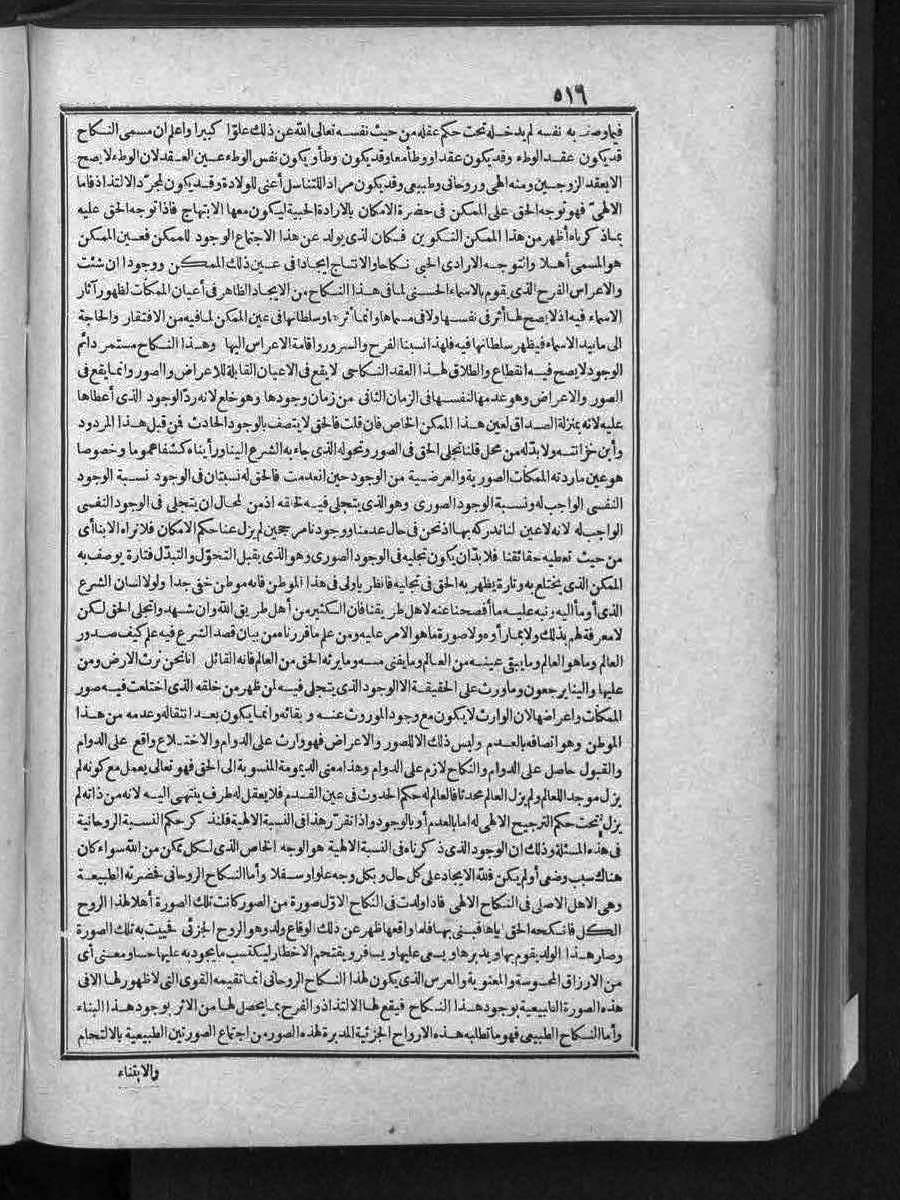 ٥١٦
فيما وصف به نفسه لم يدخله تحت حكم عقله من حيث نفسه تعالى الله عن ذلك علوا كبيرا واعلم ان مسمى النكاح
قد يكون عقد الوطء وقد يكون عقدا ووطأ معا وقد يكون وطأ ويكون نفس الوطء عين العقد لان الوطء لا يصح
الا بعقد الزوجين ومنه الهى وروحانى وطبيعى وقد يكون مرادا للتناسل أعنى للولادة وقد يكون لمجرد الالتذاذ فاما
الالهىّ فهو توجه الحق على الممكن فى حضرة الامكان بالارادة الحبية ليكون معها الابتهاج فاذا توجه الحق عليه
بما ذكرناه أظهر من هذا الممكن التكوين فكان لذى يولد عن هذا الاجتماع الوجود للممكن فعين الممكن
هو المسمى أهلا والتوجه الارادى الحبى نكاحا والانتاج ايجادا فى عين ذلك الممكن ووجودا ان شئت
والاعراس الفرح الذى يقوم بالاسماء الحسنى لما فى هذا النكاح من الايجاد الظاهر فى أعيان الممكنات لظهور آثار
الاسماء فيه اذ لا يصح لها أثر فى نفسها ولا فى مسماها وانما أثرها وسلطانها فى عين الممكن لما فيه من الافتقار والحاجة
الى ما بيد الاسماء فيظهر سلطانها فيه فلهذا نسبنا الفرح والسرور واقامة الاعراس اليها وهذا النكاح مستمر دائم
الوجود لا يصح فيه انقطاع والطلاق لهذا العقد النكاحى لا يقع فى الاعيان القابلة للاعراض والصور وانما يقع فى
الصور والاعراض وهو عدمها لنفسها فى الزمان الثانى من زمان وجودها وهو خلع لانه ردّ الوجود الذى أعطاها
عليه لانه بمنزلة الصداق لعين هذا الممكن الخاص فان قلت فالحق لا يتصف بالوجود الحادث فن قبل هذا المردود
وأين خزانته ولا بدّ له من محل قلنا تجلى الحق فى الصور وتحوله الذى جاء به الشرع الينا ورأيناه كشفا عموما وخصوصا
هو عين ما ردته الممكنات الصورية والعرضية من الوجود حين انعدمت فالحق له نسبتان فى الوجود نسبة الوجود
النفسى الواجب له ونسبة الوجود الصورى وهو الذى يتجلى فيه لخلقه اذ من لمحال ان يتجلى فى الوجود النفسى
الواجب له لانه لا عين لنا ندركه بها اذ نحن فى حال عدمنا ووجودنا مرجحين لم يزل عنا حكم الامكان فلا نراه الا بنا أى
من حيث تعطيه حقائقنا فلا بدّ ان يكون تجليه فى الوجود الصورى وهو الذى يقبل التحوّل والتبدّل فتارة يوصف به
الممكن الذى يختلع به وتارة يظهر به الحق فى تجليه فانظر ياولى فى هذا الموطن فانه موطن خفى جدا ولولا لسان الشرع
الذى أومأ اليه ونبه عليه ما أفصحنا عنه لاهل طريقنا فان الكثير من أهل طريق الله وان شهدوا تجلى الحق لكن
لا معرفة لهم بذلك ولا بما رأوه ولا صورة ما هو الامر عليه ومن علم ما قررناه من بيان قصد الشرع فيه علم كيف صدور
العالم وما هو العالم وما يبقى عينه من العالم وما يفنى منه وما يرثه الحق من العالم فانه القائل انا نحن نرث الارض ومن
عليها والينا يرجعون وما ورث على الحقيقة الا الوجود الذى يتجلى فيه لمن ظهر من خلقه الذى اختلعت فيه صور
الممكنات واعراضها لان الوارث لا يكون مع وجود الموروث عنه و بقائه وانما يكون بعد انتقاله وعدمه من هذا
الموطن وهو اتصافه بالعدم وليس ذلك الا للصور والاعراض فهو وارث على الدوام والاختلاع واقع على الدوام
والقبول حاصل على الدوام والنكاح لازم على الدوام وهذا معنى الديمومة المنسوبة الى الحق فهو تعالى يعمل مع كونه لم
يزل موجدا للعالم ولم يزل العالم محدثا فالعالم له حكم الحدوث فى عين القدم فلا يعقل له طرف ينتهى اليه لانه من ذاته لم
يزل تحت حكم الترجيح الالهى له اما بالعدم أو بالوجود واذا تقرّر هذا فى النسبة الالهية فلنذكر حكم النسبة الروحانية
فى هذه المسئلة وذلك ان الوجود الذى ذكرناه فى النسبة الالهية هو الوجه الخاص الذى لكل ممكن من الله سواء كان
هناك سبب وضعى أو لم يكن فلله الايجاد على كل حال و بكل وجه علوا وسفلا وأما النكاح الروحانى فحضرته الطبيعة
وهى الاهل الاصلى فى النكاح الالهى فاذا ولدت فى النكاح الاوّل صورة من الصور كانت تلك الصورة أهلا لهذا الروح
الكل فانكحه الحق اياها فبنى بها فلما واقعها ظهر عن ذلك الوقاع ولد وهو الروح الجزئى فحييت به تلك الصورة
وصار هذا الولد يقوم بها ويدبرها ويسعى عليها و يسافر ويقتحم الاخطار ليكتسب ما يجود به عليها حسا ومعنى أى
من الارزاق المحسوسة والمعنوية والعرس الذى يكون لهذا النكاح الروحانى انما تقيمه القوى التى لا ظهور لها الا فى
هذه الصورة الطبيعية بوجود هذا النكاح فيقع لها الالتذاذ والفرح بما يحصل لها من الاثر بوجود هذا البناء
وأما النكاح الطبيعى فهو ما تطلبه هذه الارواح الجزئية المدبرة لهذه الصور من اجتماع الصورتين الطبيعيتين بالالتحام
والابتناء